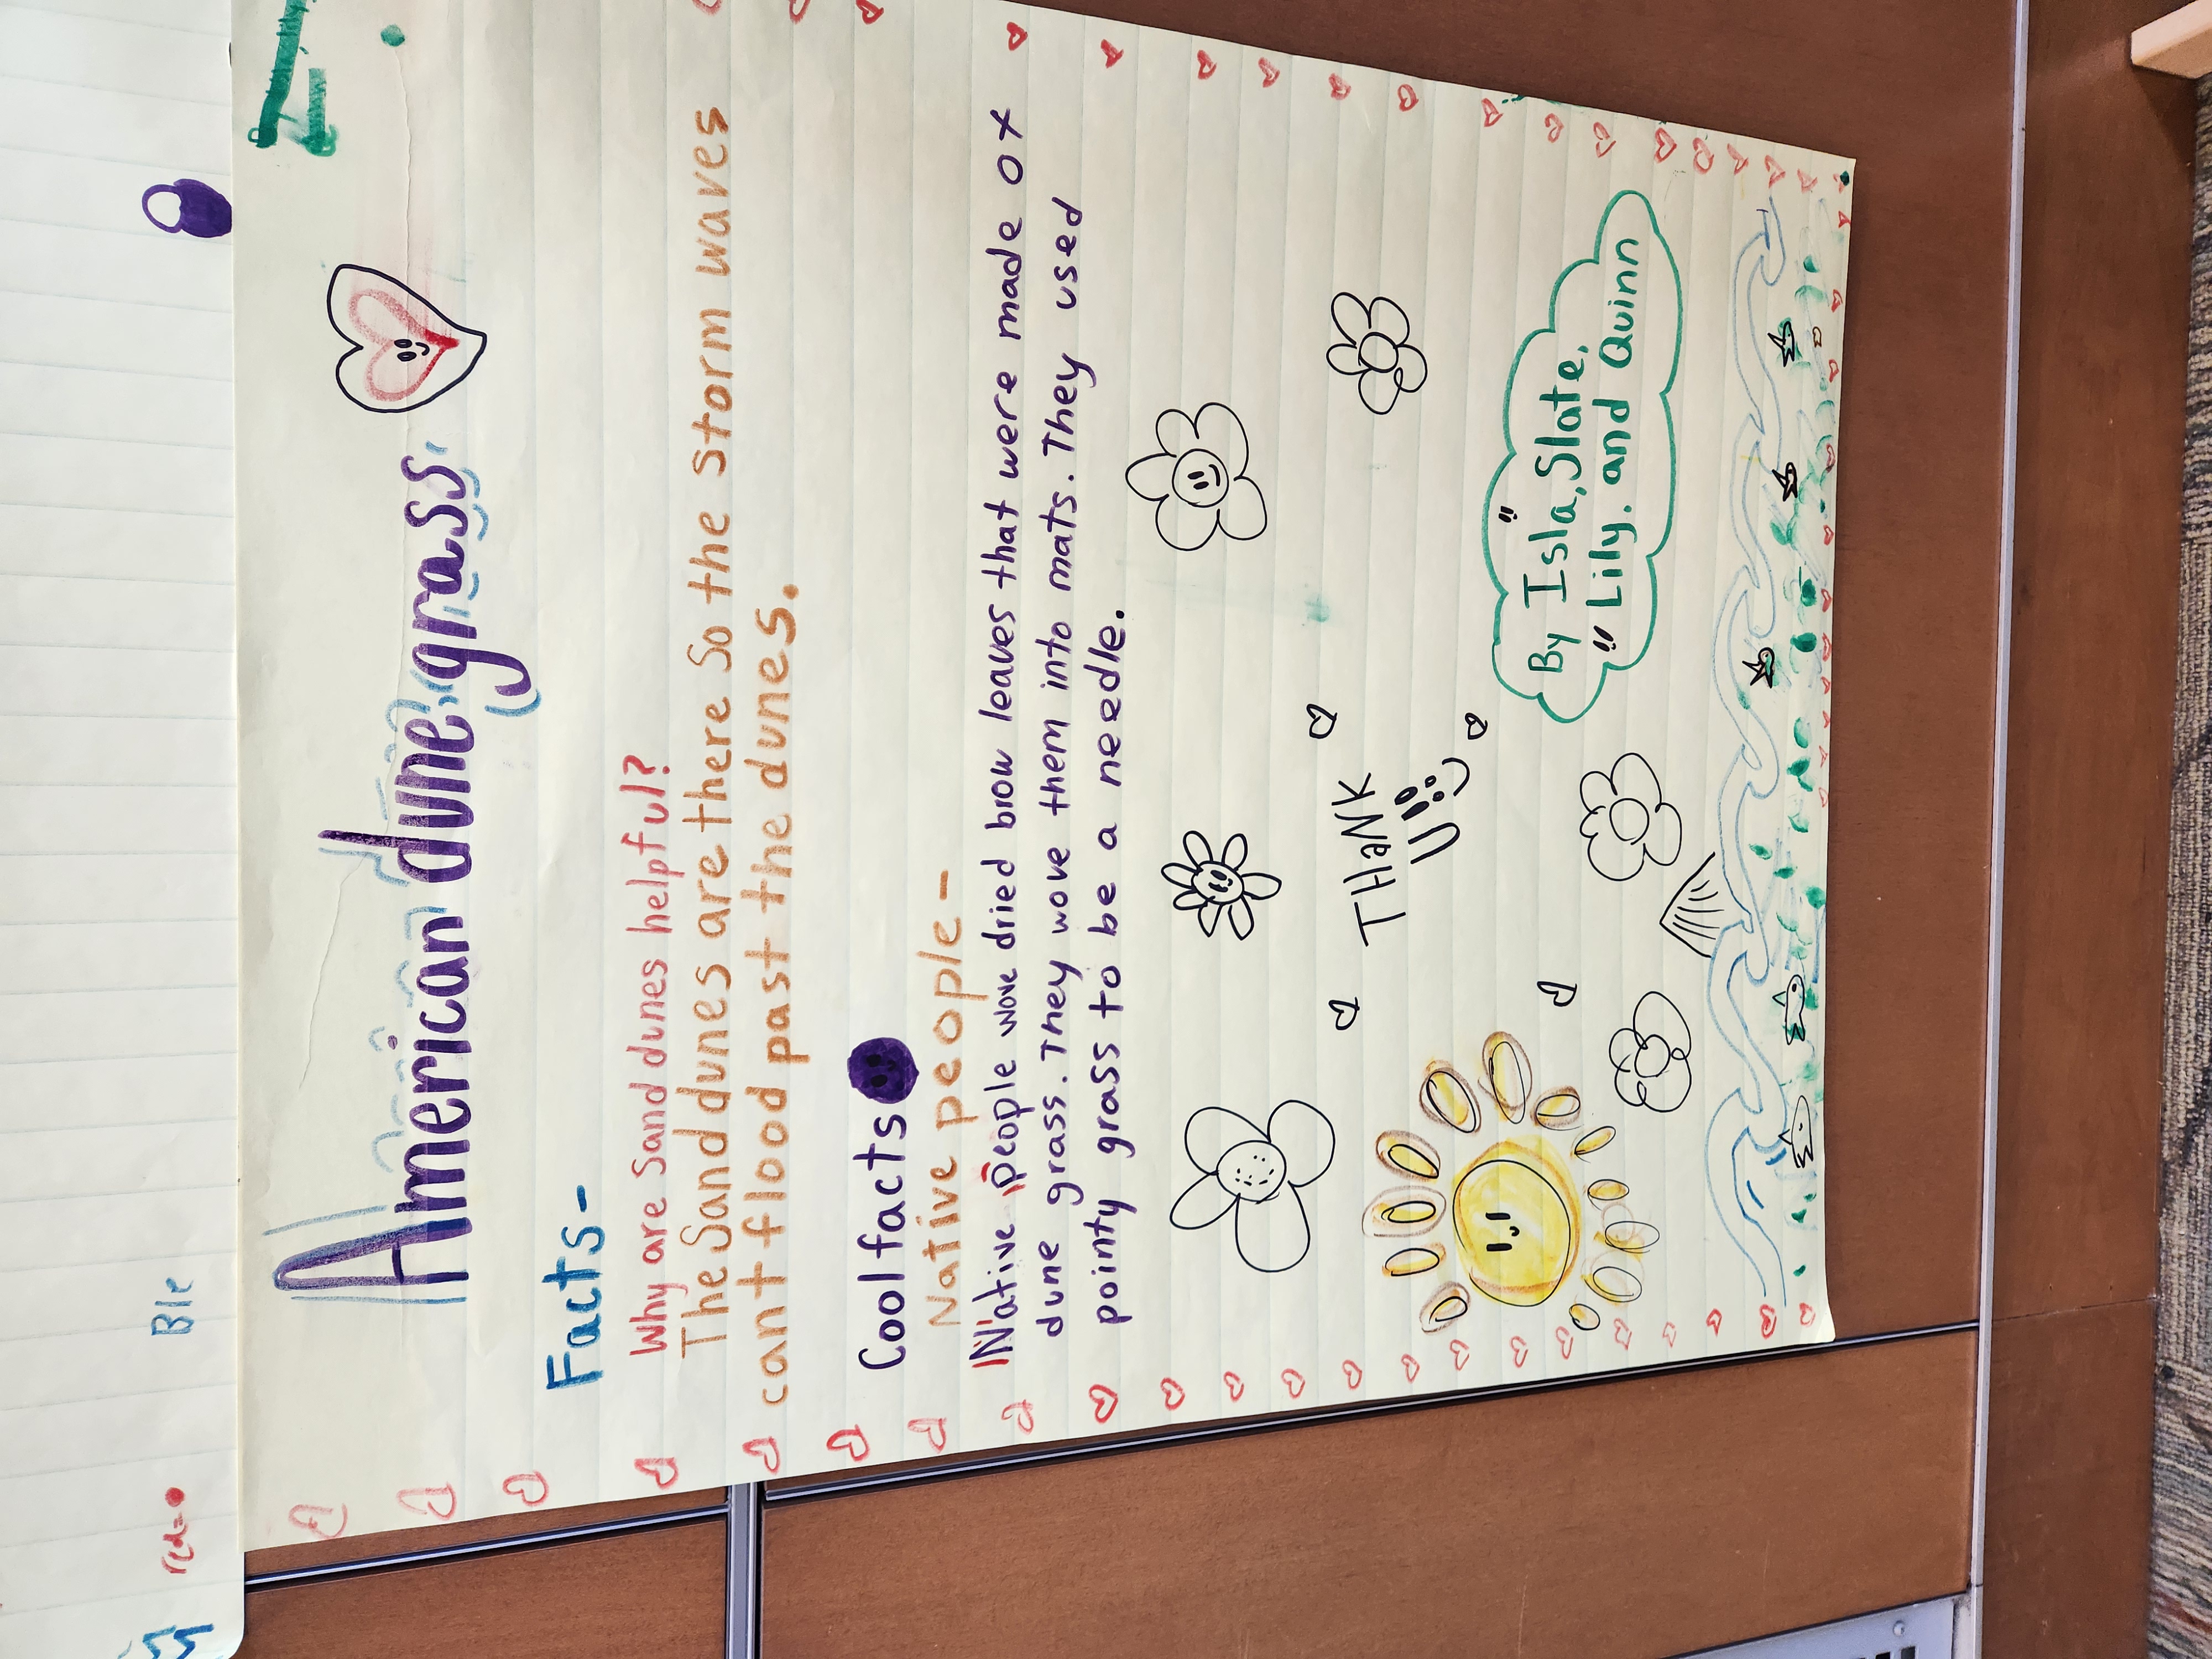 American dune grass
Facts-
Why are Sand dunes helpful?
The Sand dunes are there So the storm waves
cant flood past the dunes.
Cool facts
Native people-
Native people wove dried brow leaves that were made ox
dune grass. They wove them into mats. They used
pointy grass to be a needle.
THaNK
U
By Isla, Slate,
Lily. and Quinn
red=
Ble